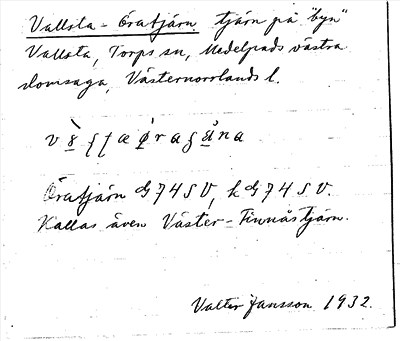 Vallsta-Öratjärn tjärn på "byn"
Vallsta, Torps sn, Medelpads västra
domsaga, Västernorrlands l.
Öratjärn G74SV, k G74SV.
Kallas även Väster-Finnåstjärn.
Valter Jansson 1932.